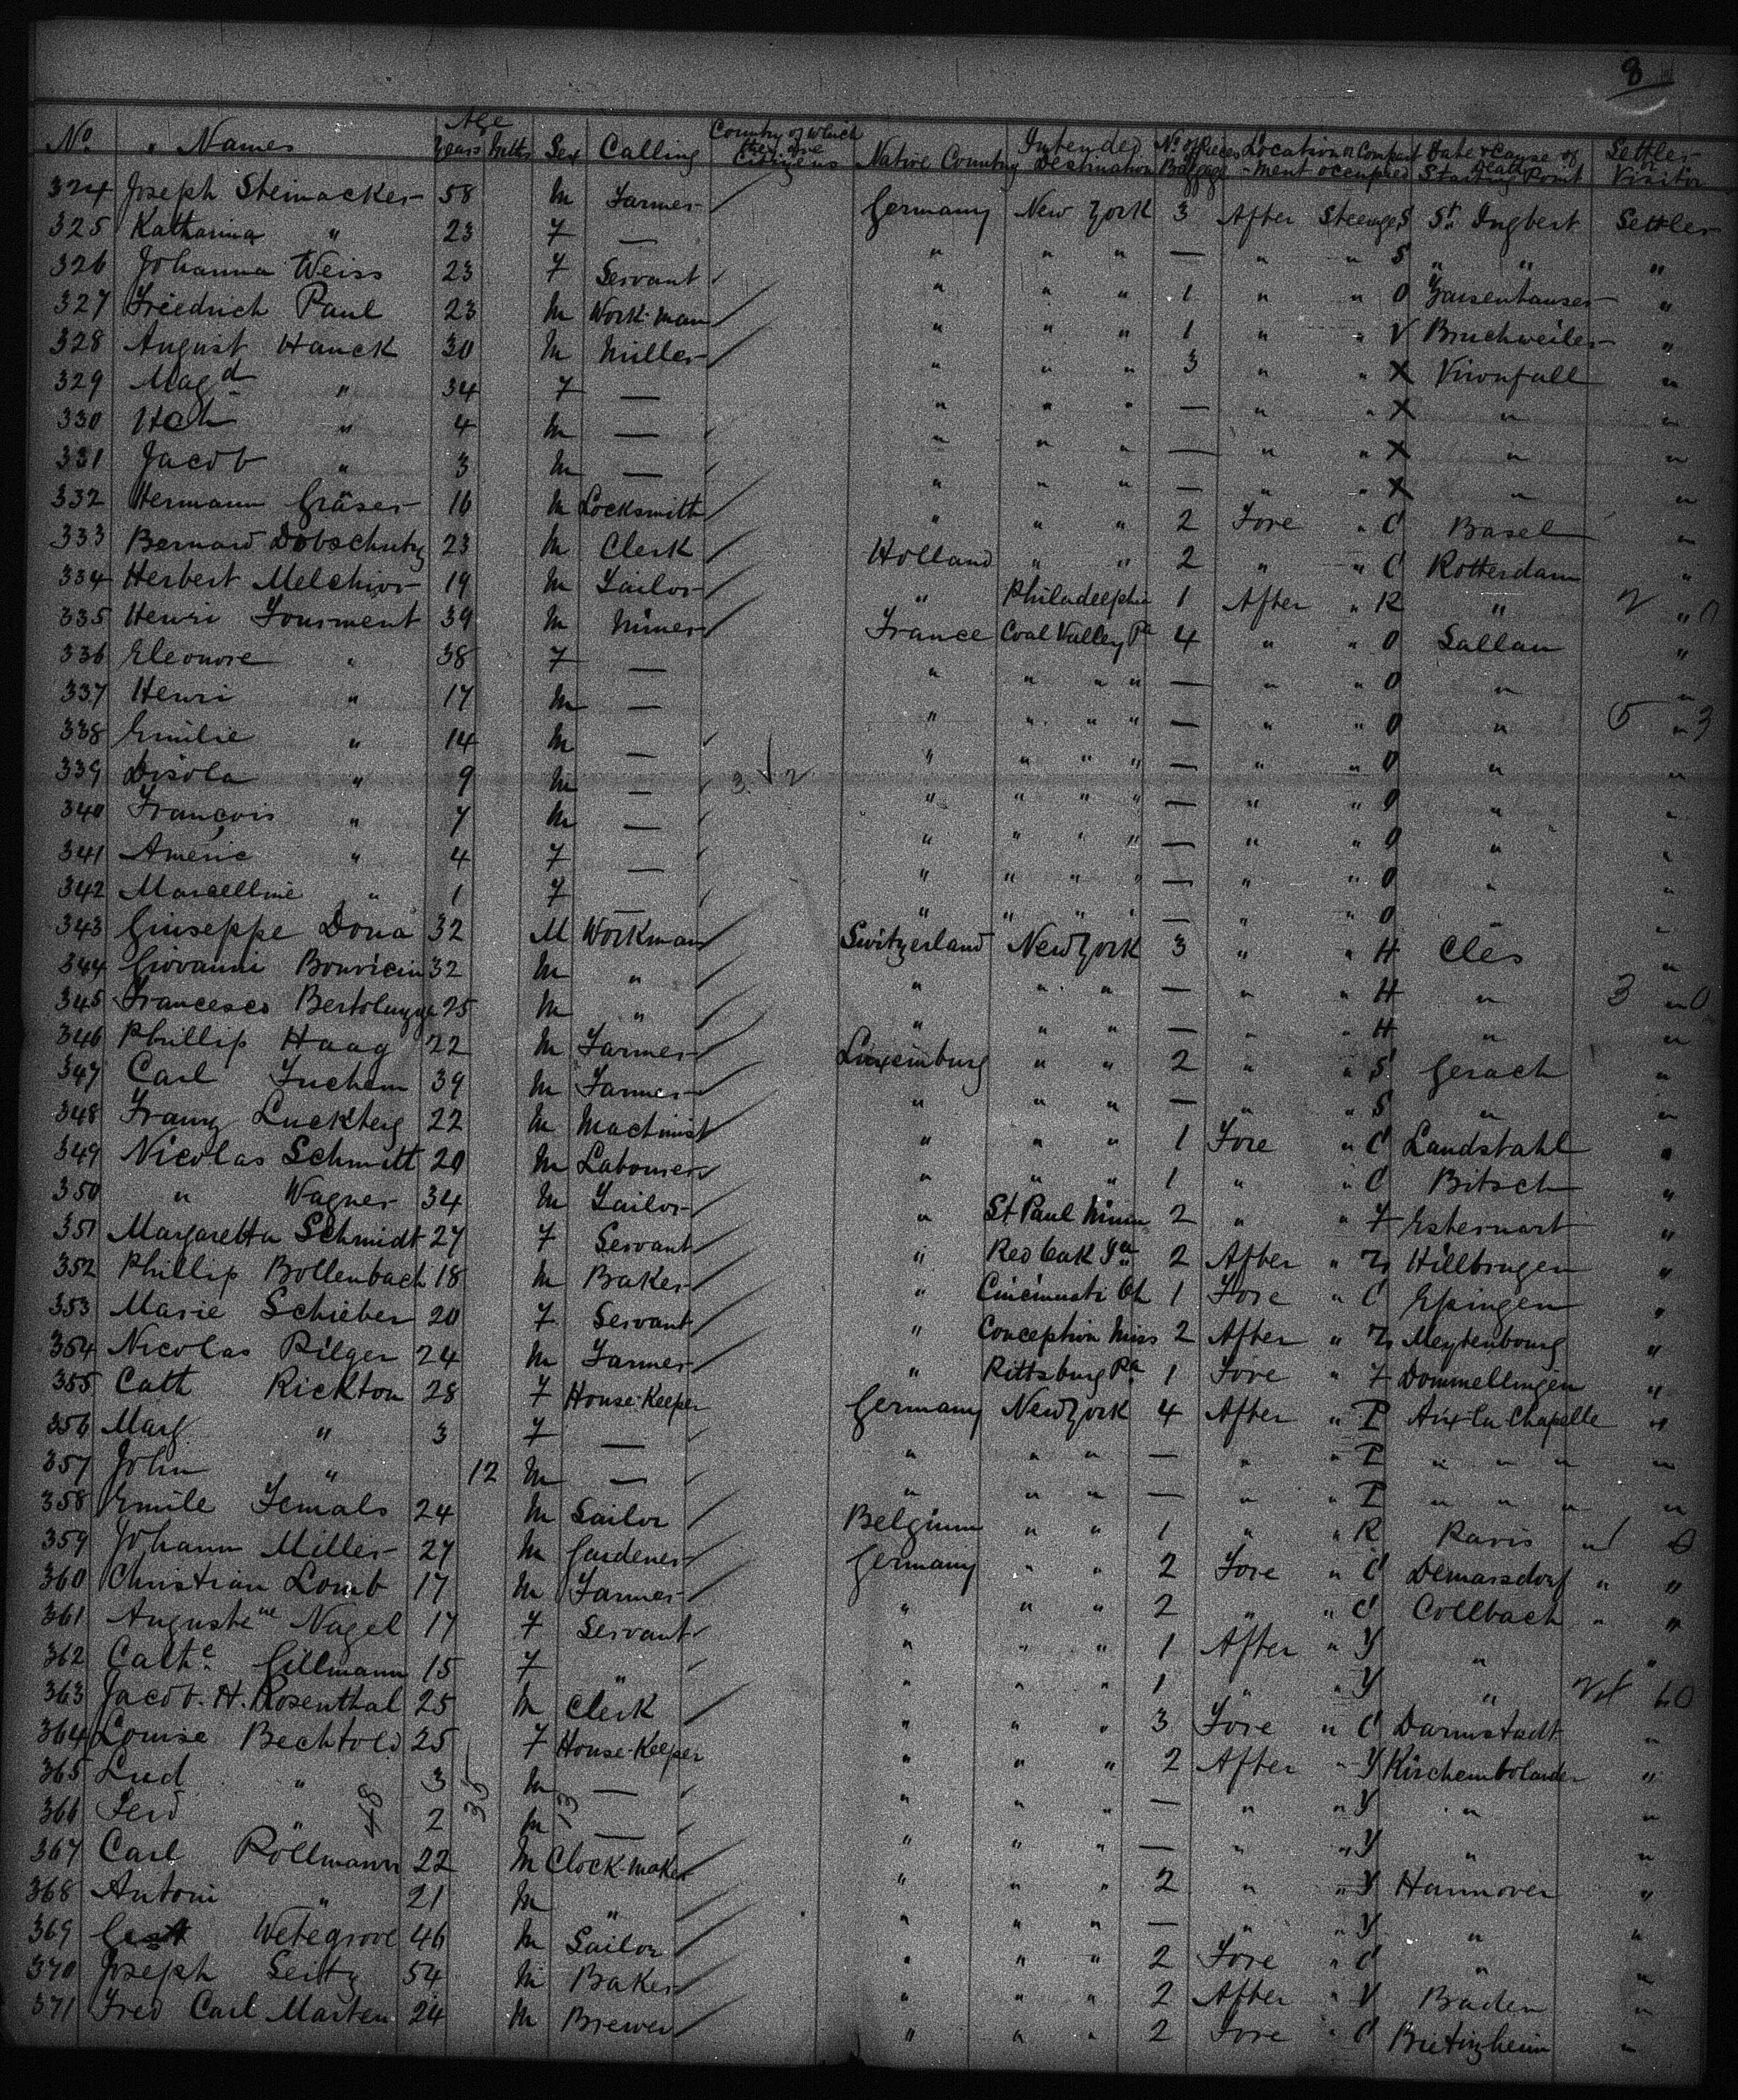 8
No. Names Age Years Mths Sex Calling Country of which they are Citizens Native Country Intended Destination No. of Pieces Baggage Location or Compartment occupied Date & Cause of Death Starting Point Settler or Visitor
324 Joseph Steinacker 58 M Farmer Germany New York 3 After Steerage S St. Ingbert Settler
325 Katharina " 23 F — " " " — " " S " " "
326 Johanna Weiss 23 F Servant " " " 1 " " O Zaisenhauser "
327 Friedrich Paul 23 M Work-man " " " 1 " " V Bruchweiler "
328 August Hauck 30 M Miller " " " 3 " " X "
329 Magd " 34 F — " " " — " " X " "
330 Hch " 4 M — " " " — " " X " "
331 Jacob " 3 M — " " " — " " X " "
332 Hermann Gräser 16 M Locksmith " " " 2 Fore " C Basel "
333 Bernard Dobschutz 23 M Clerk Holland " " 2 " " C Rotterdam "
334 Herbert Melchior 19 M Sailor " Philadelphia 1 After " R " 2 " 0
335 Henri Fourment 39 M Miner France Coal Valley Pa 4 " " O Lallau "
336 Eleonore " 38 F — " " " " — " " O " "
337 Henri " 17 M — " " " " — " " O " 5 " 3
338 Emilie " 14 M — " " " " — " " O " "
339 Disola " 9 M — 3 √ 2 " " " " — " " O " "
340 François " 7 M — " " " " — " " O " "
341 Americ " 4 F — " " " " — " " O " "
342 Marcelline " 1 F — " " " " — " " O " "
343 Giuseppe Dona 32 M Workman Switzerland New York 3 " " H Cles "
344 Giovanni Bonvicin 32 M " " " " — " " H " 3 " 0
345 Francesco Bertoluzza 25 M " " " " — " " H " "
346 Phillip Haag 22 M Farmer Luxemburg " " 2 " " S Gerach "
347 Carl Juchem 39 M Farmer " " " — " " S " "
348 Franz Luckteig 22 M Machinist " " " 1 Fore " C Landstahl "
349 Nicolas Schmitt 20 M Labourer " " " 1 " " C Bitsch "
350 " Wagner 34 M Tailor " St Paul Minn 2 " " F Esternart "
351 Margaretta Schmidt 27 F Servant " Red Oak Ia 2 After " Hillbrngen "
352 Phillip Bollenbach 18 M Baker " Cincinnati Oh 1 Fore " C Epingen "
353 Marie Schieber 20 F Servant " Conception Miss 2 After " Meytenbourg "
354 Nicolas Pilger 24 M Farmer " Pittsburg Pa 1 Fore " F Dommellingen "
355 Cath Rickton 28 F House-Keeper Germany New York 4 After " I Aix-la-Chapelle "
356 Marg " 3 F — " " " — " " I " " " "
357 John " 12 M — " " " — " " I " " " "
358 Emile Jemals 24 M Sailor Belgium " " 1 " " R Paris " 1 0
359 Johann Miller 27 M Gardener Germany " " 2 Fore " C Demarsdorf " "
360 Christian Lomb 17 M Farmer " " " 2 " " C Collbach " "
361 Augustene Nagel 17 F Servant " " " 1 After " Y " "
362 Cathe. Gillmann 15 F " " " " 1 " " Y "
363 Jacob. H. Rosenthal 25 M Clerk " " " 3 Fore " C Darmstadt "
364 Louise Bechtold 25 F House-Keeper " " " 2 After " Y Kirchembolander "
365 Lud " 3 M — " " " — " " Y " "
366 Ferd 48 2 35 M 13 — " " " — " " Y " "
367 Carl Röllmann 22 M Clock-maker " " " 2 " " Y Hannover "
368 Antoni " 21 M " " " " — " " Y " "
369 Wetegrove 46 M Sailor " " " 2 Fore " C " "
370 Joseph Seitz 54 M Baker " " " 2 After " V Baden "
371 Fred Carl Marten 24 M Brewer " " " 2 Fore " C Bietigheim "